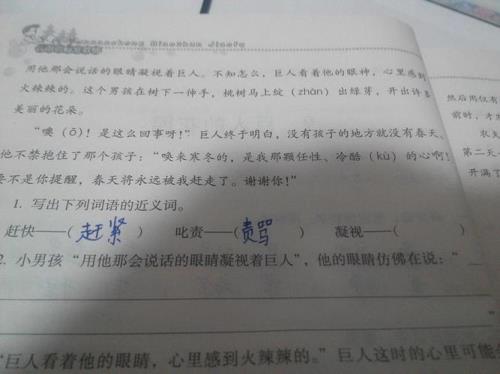 用他那会说话的眼睛凝视着巨人。不知怎么，巨人看着他的眼神，心里感到
火辣辣的。这个男孩在树下一伸手，桃树马上绽（zhàn）出绿芽，开出许多
美丽的花朵。
“噢（ō）！是这么回事呀！”巨人终于明白，没有孩子的地方就没有春天。
他不禁抱住了那个孩子：“唤来寒冬的，是我那颗任性、冷酷（kù）的心啊！
要不是你提醒，春天将永远被我赶走了。谢谢你！”
1. 写出下列词语的近义词。
赶快——（赶紧） 叱责——（责骂） 凝视——（ ）
2. 小男孩“用他那会说话的眼睛凝视着巨人”，他的眼睛仿佛在说：“
”
“巨人看着他的眼睛，心里感到火辣辣的。”巨人这时的心里可能
然后用仅有
前时，才
农夫
第二天
开满了